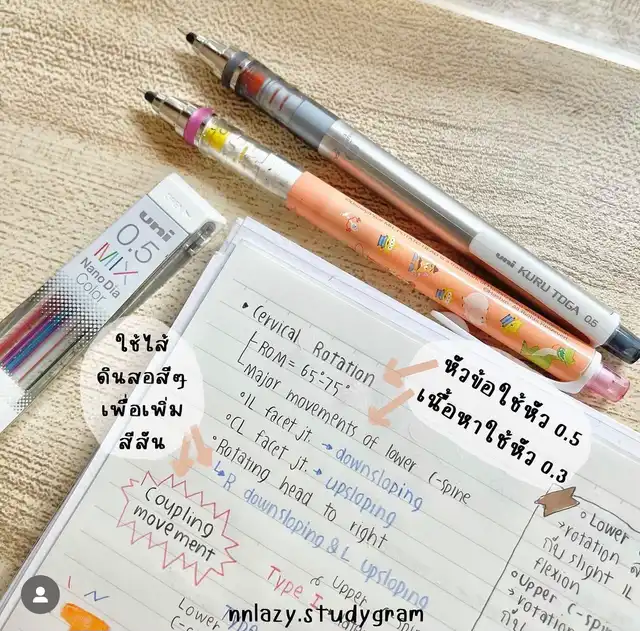 uni KURU TOGA 0.5
uni
0.5
MIX
Nano Dia
Color
ใช้ไส้
ดินสอสีๆ
เพื่อเพิ่ม
สีสัน
หัวข้อใช้หัว 0.5
เนื้อหาใช้หัว 0.3
Cervical Rotation
ROM = 65°-75°
Major movements of lower C-spine
•IL facet jt. → downsloping
•CL facet jt. → upsloping
•Rotating head to right
↳R downsloping & L upsloping
Coupling
movement
Type I
upper
Lower
Lower
→rotation
กับ slight IL
flexion
•Upper
→rotation
กับ
nnlazy.studygram